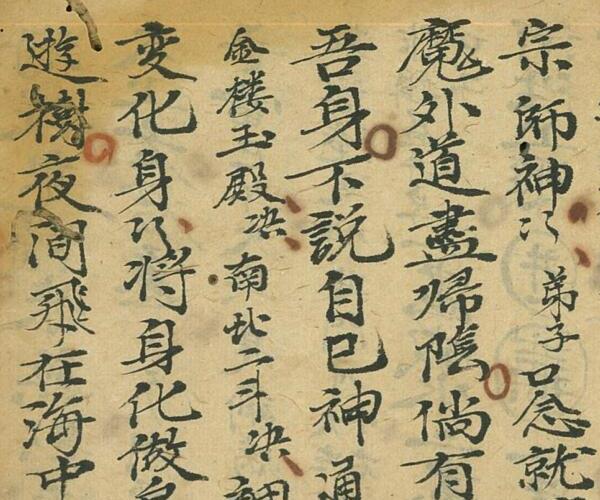 宗師神〻弟子口念就
魔外道盡歸陰倘有
吾身不說自己神通
金楼玉殿决南北二斗决調
变化身〻将身化做
遊樹夜间飛在海中